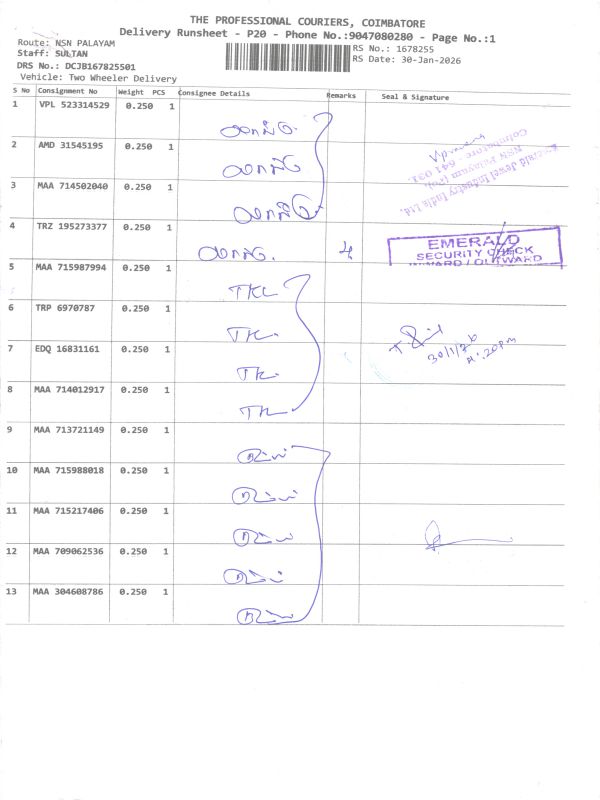 THE PROFESSIONAL COURIERS, COIMBATORE
Delivery Runsheet - P20 - Phone No.:9047080280 - Page No.:1
Route: NSN PALAYAM
Staff: SULTAN
DRS No.: DCJB167825501
Vehicle: Two Wheeler Delivery
RS No.: 1678255
RS Date: 30-Jan-2026
S No Consignment No Weight PCS Consignee Details Remarks Seal & Signature
1 VPL 523314529 0.250 1
2 AMD 31545195 0.250 1
3 MAA 714502040 0.250 1
4 TRZ 195273377 0.250 1
Emerald Jewel Industry India Ltd,
NSN Palayam (Po),
Coimbatore - 641 031.
EMERALD
SECURITY CHECK
INWARD / OUTWARD
5 MAA 715987994 0.250 1 TKL
6 TRP 6970787 0.250 1 TK
7 EDQ 16831161 0.250 1 TK
8 MAA 714012917 0.250 1 TK
30/1/26
9 MAA 713721149 0.250 1
10 MAA 715988018 0.250 1
11 MAA 715217406 0.250 1
12 MAA 709062536 0.250 1
13 MAA 304608786 0.250 1